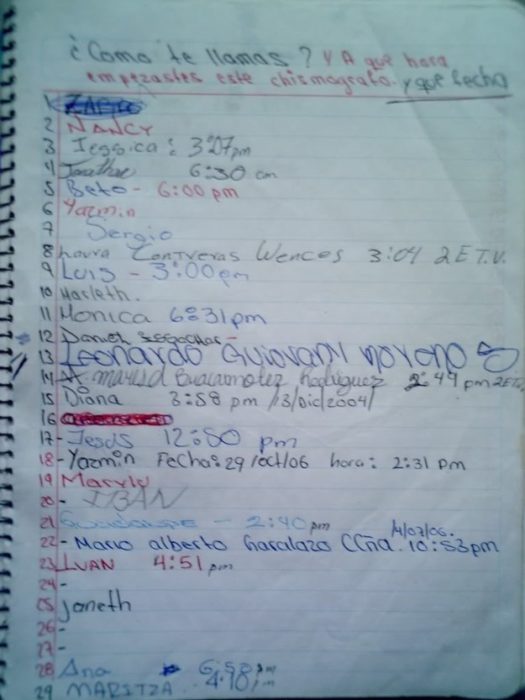 ¿Como te llamas? Y A que hora
empezastes este chismografo. y que fecha
1
2 NANCY
3 Jessica: 3:07pm
4 Jonathan 6:30 am
5 Beto - 6:00 pm
6 Yazmin
7 Sergio
8 Laura Contreras Wences 3:04 2E T.V.
9 Luis - 3:00pm
10 Marleth.
11 Monica 6:31pm
12 Daniel
13 Leonardo Guiovani Moreno
14 Rodriguez 2:44 pm
15 Diana 3:58 pm /3/Dic/2004/
16
17- Jesus 12:50 pm
18- Yazmin Fecha: 29/oct/06 hora: 2:31 pm
19 Maryly
20 - IBAN
21 Guadalupe - 2:40pm
22- Mario alberto 14/07/06. 10:53pm
23 IVAN 4:51 pm
24-
25 janeth
26 -
27 -
28 Ana 6:58 pm
29 MARITZA 4:18/pm